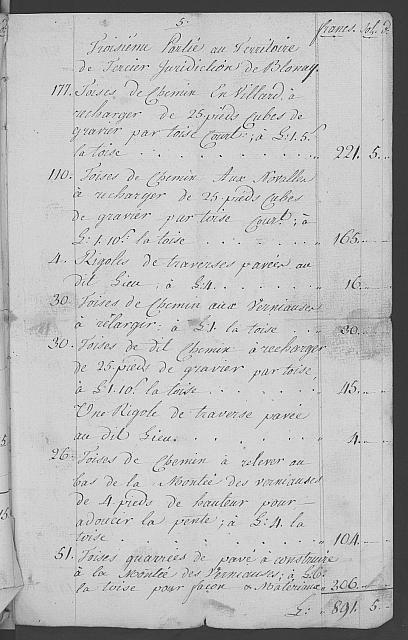 5.
francs. Sols. d.
Troisiéme Partie au Territoire
de Tercier Juridiction de Blonay.
177. Toises de Chemin En Villard, à
recharger de 25 pieds Cubes de
gravier par toise Cour.te; à £: 1. 5.s
la toise . . . . . . . . " 221. 5. —
110. Toises de Chemin Aux Novalles
à recharger de 25 pieds Cubes
de gravier par toise Cour.te; à
£: 1. 10.s la toise . . . . . . " 165. — —
4. Rigoles de traverses pavées au
dit Lieu; à £: 4. . . . . . . " 16. — —
30. Toises de Chemin aux Verniauses
à rélarger; à £: 1. la toise . . . " 30. — —
30. Toises de dit Chemin à recharger
de 25 pieds de gravier par toise,
à £: 1. 10.s la toise . . . . . . " 45. — —
Une Rigole de traverse pavée
au dit Lieu . . . . . . . . " 4. — —
26. Toises de Chemin à relever au
bas de la Montée des verniauses
de 4 pieds de hauteur pour —
adoucer la pente; à £: 4. la
toise . . . . . . . . . " 104. — —
51. Toises quarrées de pavé à construire
à la Montée des Verniauses; à £: 6.
la toise pour façon & Materiaux " 306. — —
£: " 891. 5. —